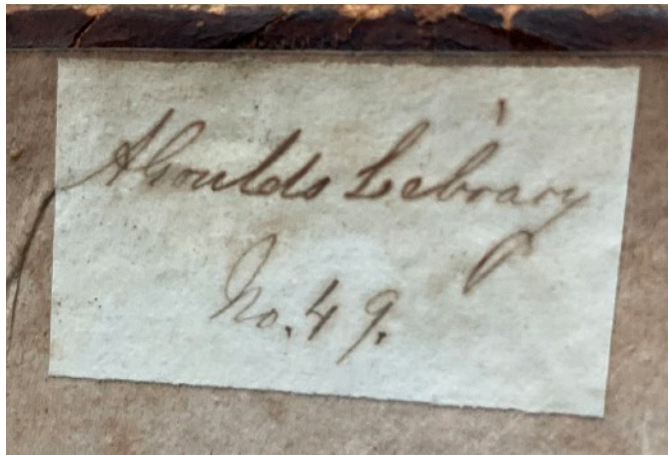 AGoulds Library
No. 49.